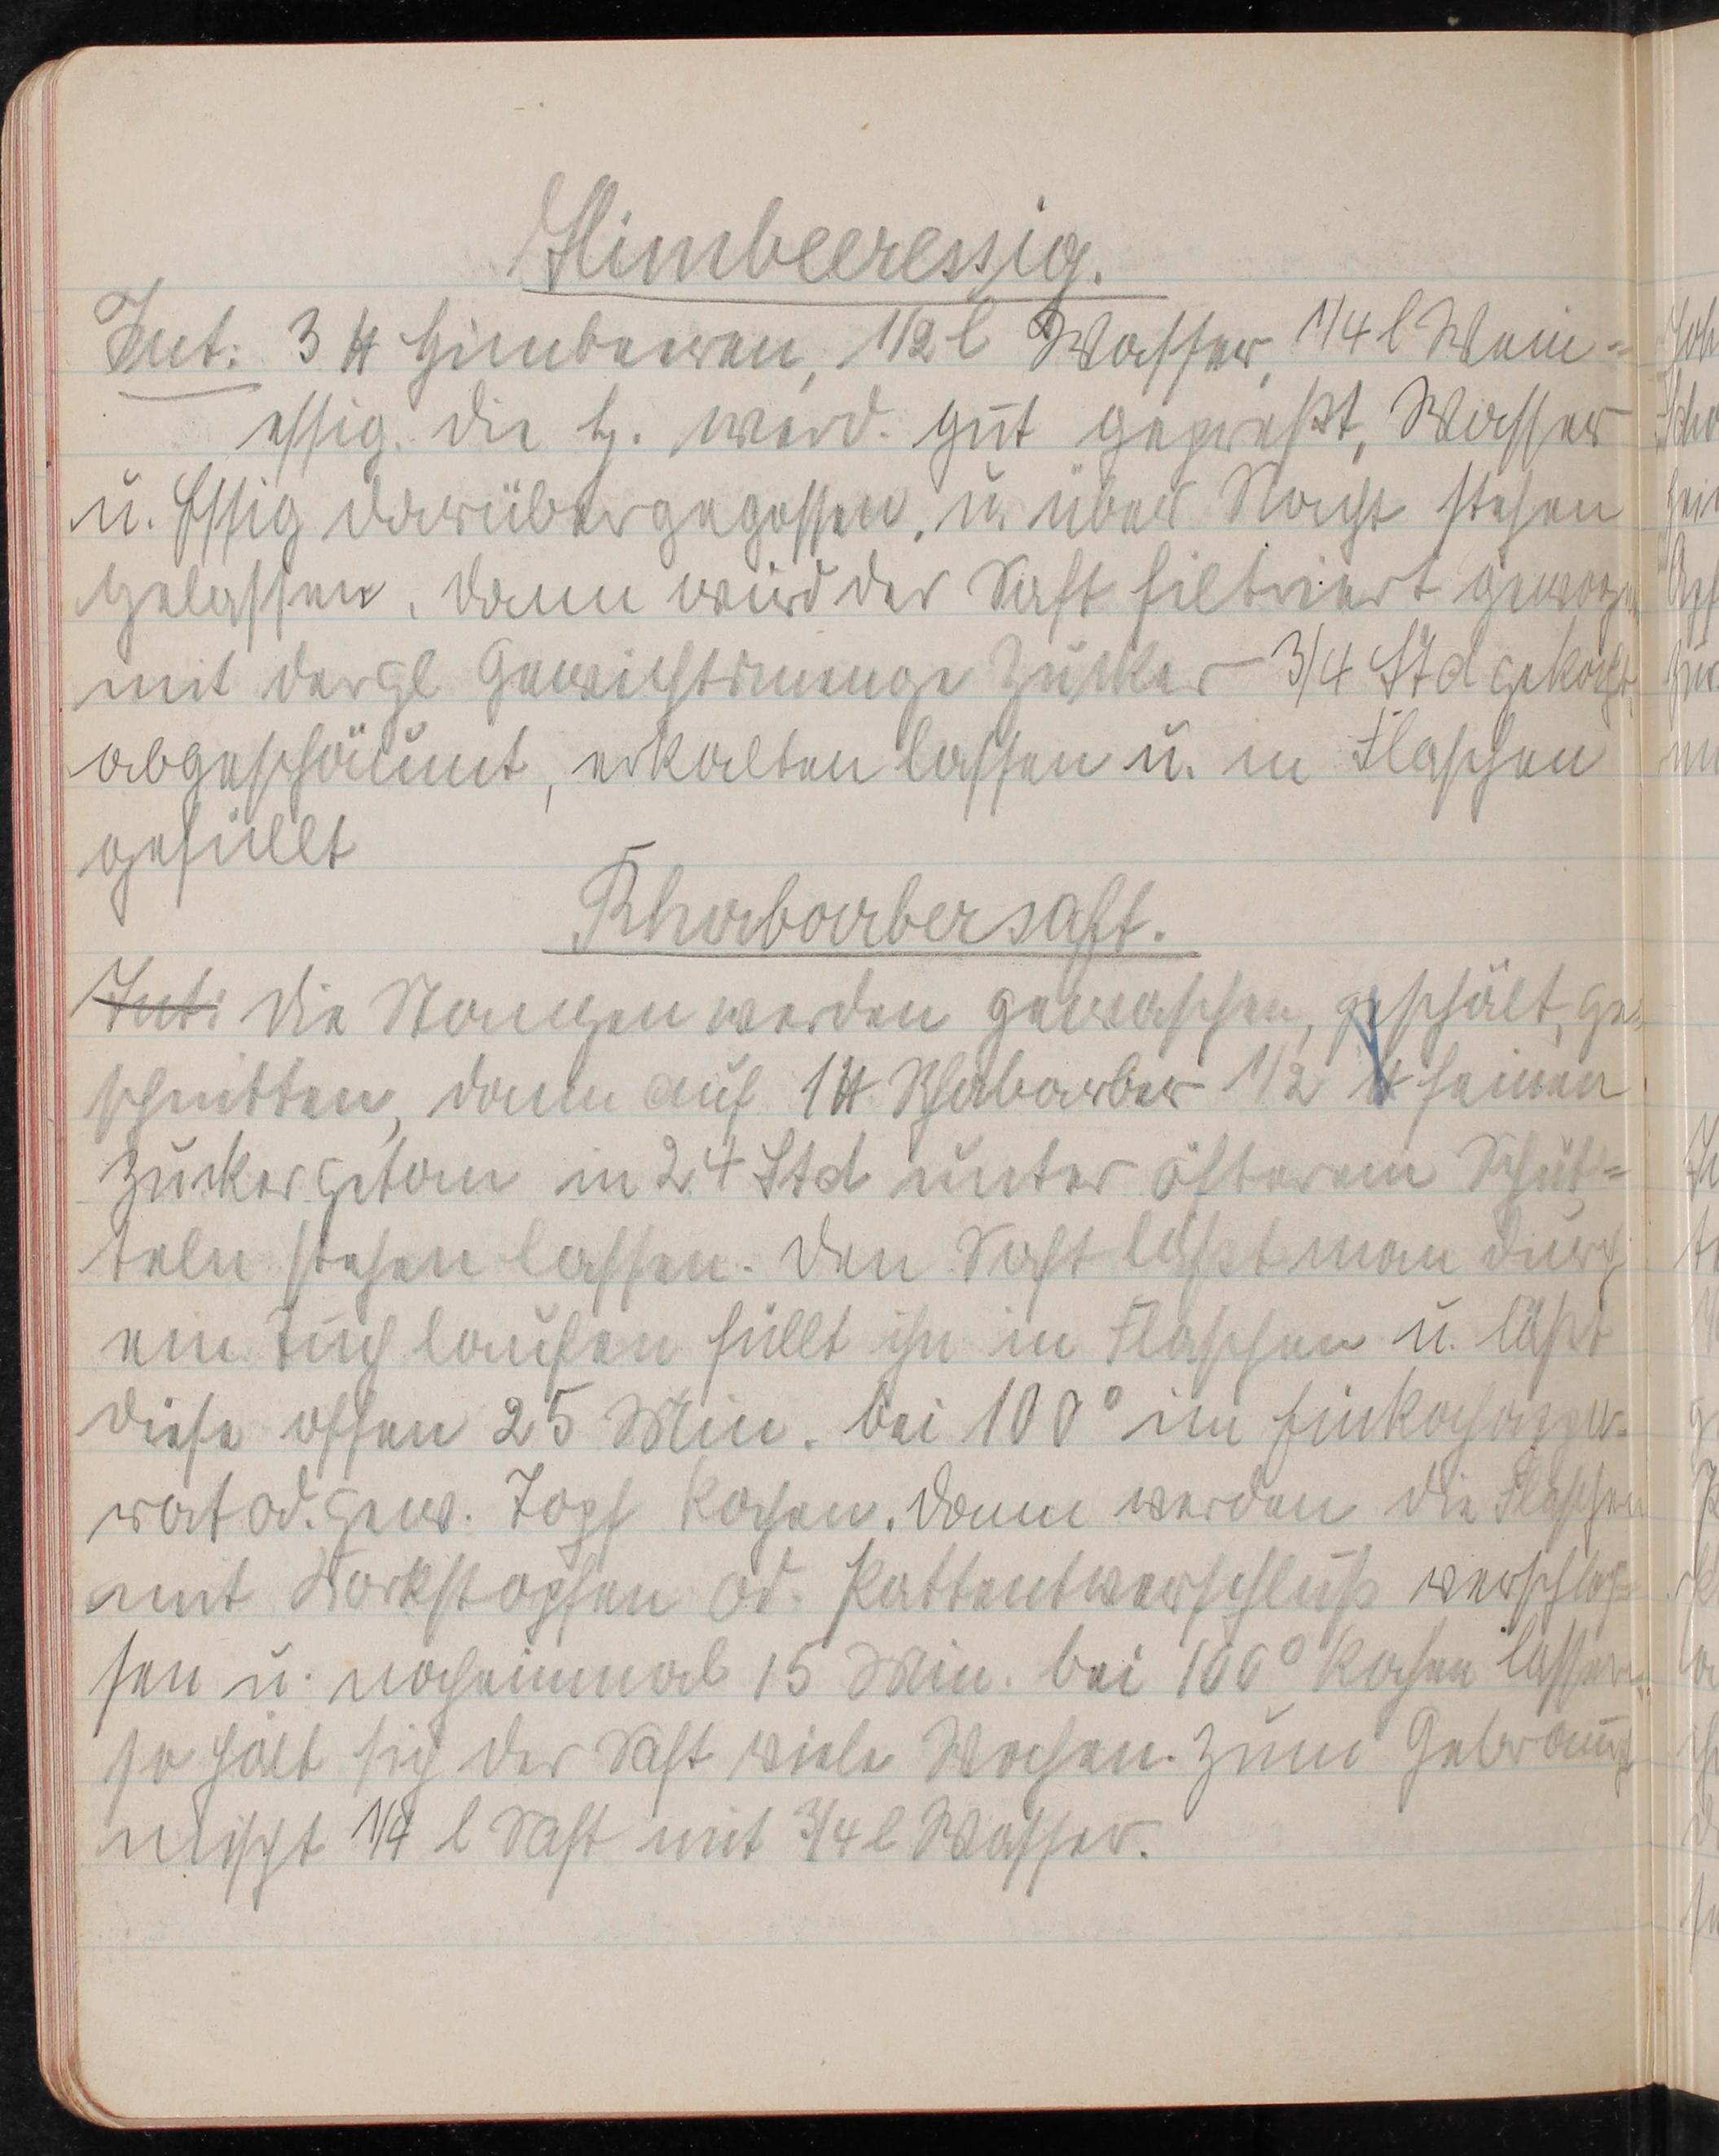 Himbeeressig.
Zut: 3 ℔ Himbeeren, 1/2 l Wasser, 1/4 l Wein-
essig. Die H. werd. gut gepreßt, Wasser
u. Essig darübergegossen, u. über Nacht stehen
gelassen. Dann wird der Saft filtriert gewogen
mit der gl Gewichtsmenge Zucker 3/4 Std gekocht,
abgeschäumt, erkalten lassen u. in Flaschen
gefüllt
Rhabarbersaft.
Zut: Die Stangen werden gewaschen, geschält, ge-
schnitten, dann auf 1 ℔ Rhabarber 1/2 ℔ feinen
Zucker getan in 24 Std unter öfterem Schüt-
teln stehen lassen. Den Saft läßt man durch
ein Tuch laufen füllt ihn in Flaschen u. läßt
diese offen 25 Min. bei 100° im Einkochappa-
rat od. gew. Topf kochen. Dann werden die Flaschen
mit Korkstopfen od. Pattentverschluß verschlos-
sen u. nocheinmal 15 Min. bei 100° kochen lassen.
so hält sich der Saft viele Wochen. Zum Gebrauch
mischt 1/4 l Saft mit 3/4 l Wasser.